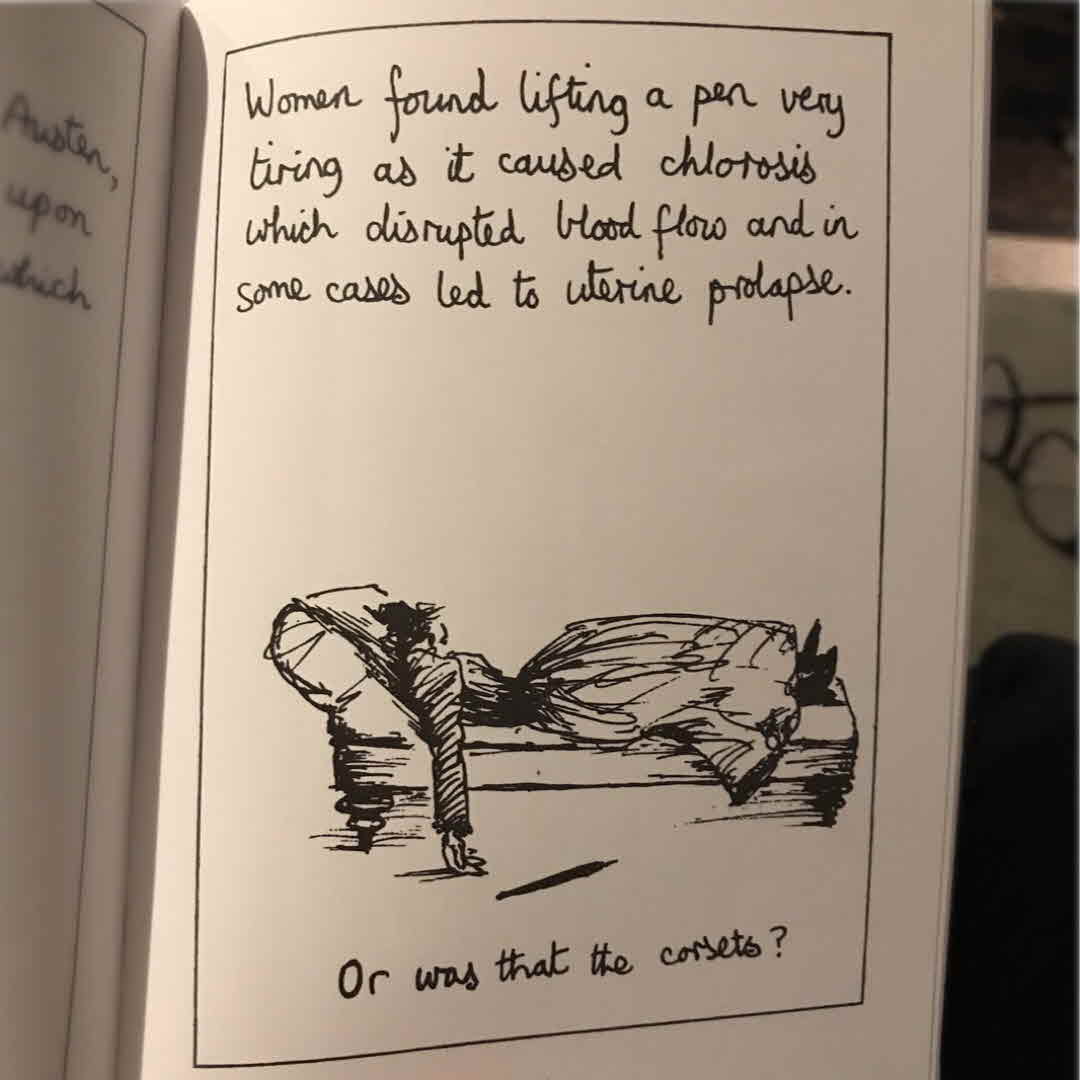 Austen,
upon
which
Women found lifting a pen very
tiring as it caused chlorosis
which disrupted blood flow and in
some cases led to uterine prolapse.
Or was that the corsets?